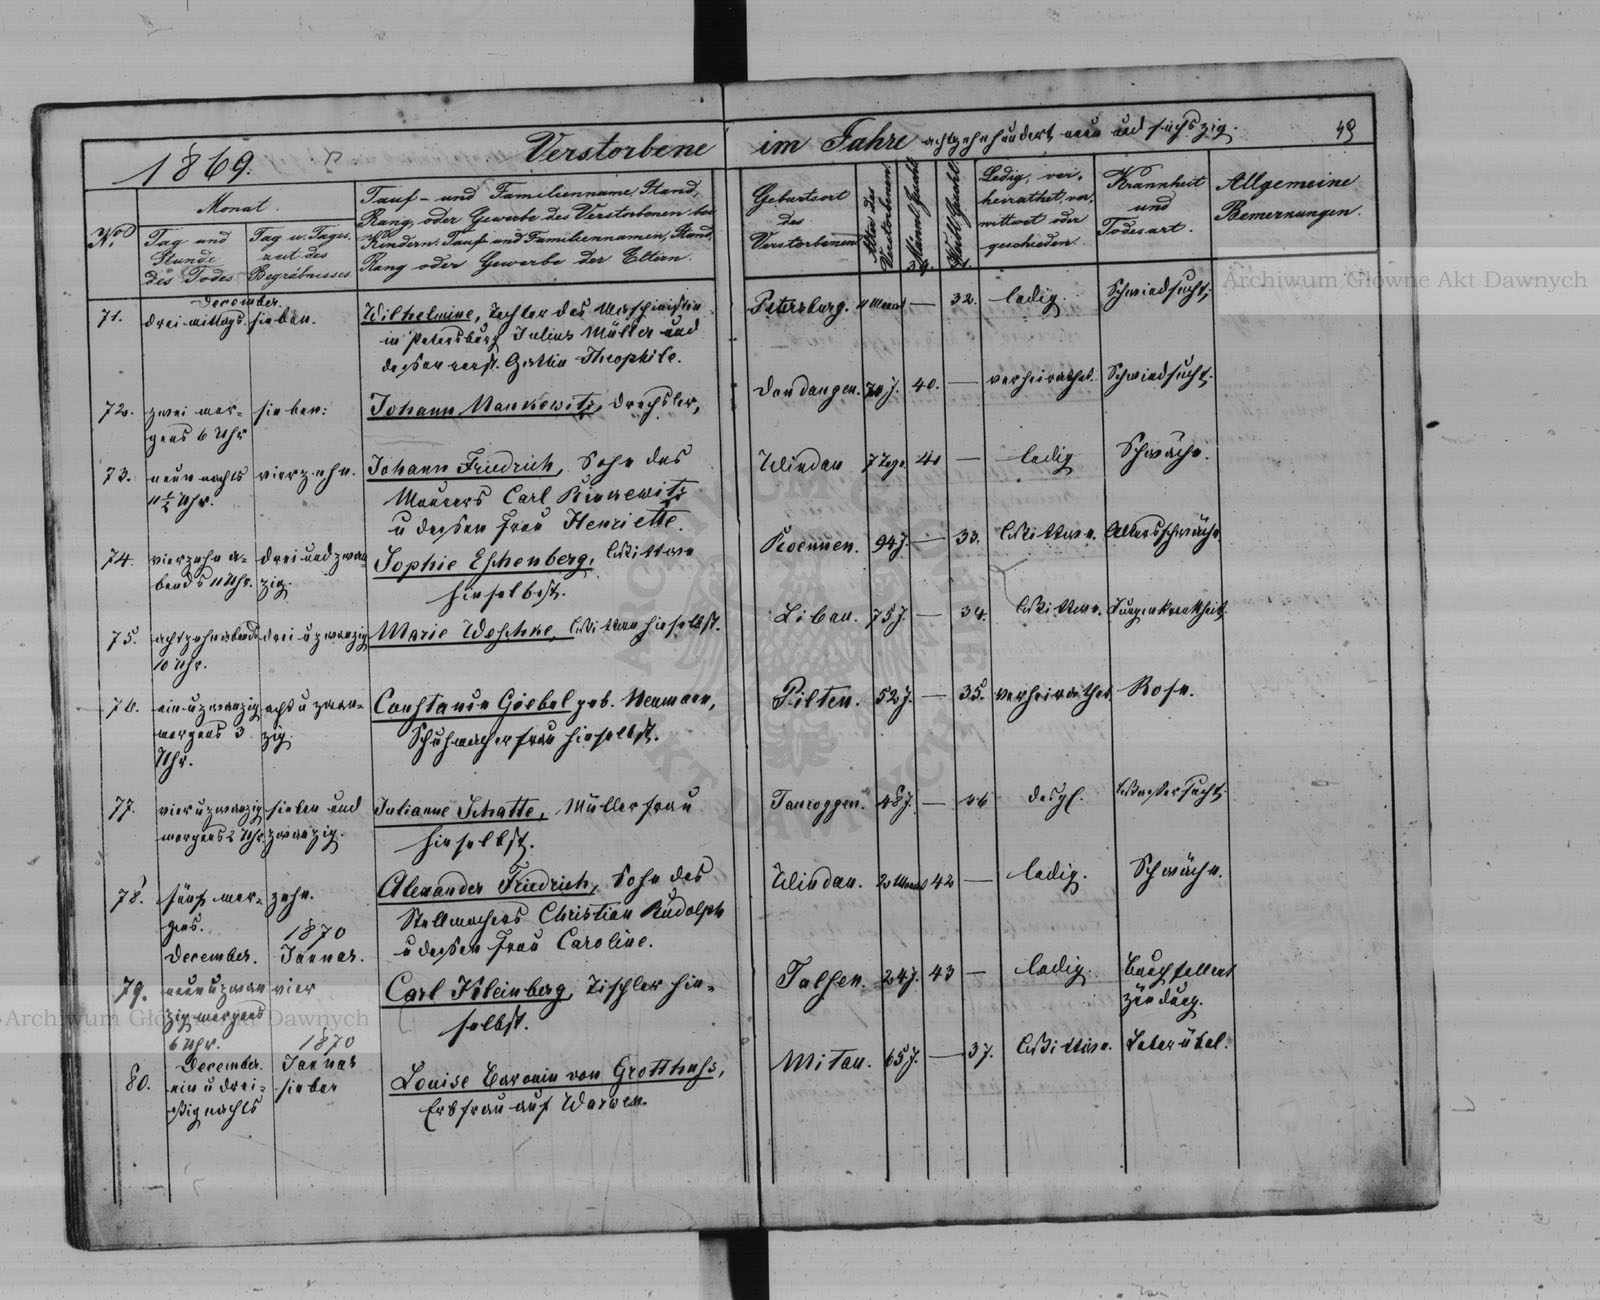 1869.
Verstorbene im Jahre achtzehnhundert neun und sechszig.
49
No
Monat.
Tag und Stunde des Todes
Tag u. Tageszeit des Begräbnisses.
Tauf- und Familienname, Stand,
Rang oder Gewerbe des Verstorbenen bei
Kindern: Tauf- und Familiennamen, Stand,
Rang oder Gewerbe der Eltern.
Geburtsort des Verstorbenen
Alter des Verstorbenen.
Männl. Geschl.
Weibl. Geschl.
Ledig, verheirathet, verwittwet oder geschieden.
Krankheit und Todesart.
Allgemeine Bemerkungen.
December.
71. drei mittags. sieben. Wilhelmine, Tochter des Maschinisten Petersburg. 11 Monat — 32. ledig. Schwindsucht.
in Petersburg Julius Müller und
dessen verst. Gattin Theophile.
72. zwei mor- sieben. Johann Mankewitz, Drechsler, Dondangen. 70 J. 40. — verheirathet. Schwindsucht.
gens 6 Uhr
73. neun nachts vierzehn. Johann Friedrich, Sohn des Windau 7 Tage 41 — ledig Schwäche.
11 ½ Uhr. Maurers Carl
u dessen Frau Henriette.
74. vierzehn a- drei und zwan- Sophie Eschenberg, Wittwe Roennen. 94 J. — 33. Wittwe. Altersschwäche
bends 11 Uhr. zig. hieselbst.
75. achtzehn abends drei u zwanzig Marie Weschke, Wittwe hieselbst. Libau. 75 J. — 34. Wittwe. Lungenkrankheit.
10 Uhr.
76. ein u zwanzig acht u zwan- Constanze Goebel geb. Neumann, Pilten. 52 J. — 35. verheirathet Rose.
morgens 3 zig. Schuhmacherfrau hieselbst.
Uhr.
77. vier u zwanzig sieben und Julianne Schatte, Müllerfrau Tauroggen. 48 J. — 36 desgl. Wassersucht.
morgens 2 Uhr. zwanzig. hieselbst.
78. fünf mor- zehn. Alexander Friedrich, Sohn des Windau. 2 Monat 42 — ledig. Schwäche.
gens. Stellmachers Christian Rudolph
u dessen Frau Caroline.
1870
December. Januar.
79. neun u zwan vier Carl Kleinberg, Tischler hie- Talsen. 24 J. 43 — ledig. Bauchfellent
zig morgens selbst. zündung.
6 Uhr.
1870
December. Januar
80. ein u drei- sieben Louise Baronin von Grotthuss, Mitau. 65 J. — 37. Wittwe. Leberübel.
ßig nachts Erbfrau auf Warwen.
Archiwum Główne Akt Dawnych
Archiwum Główne Akt Dawnych